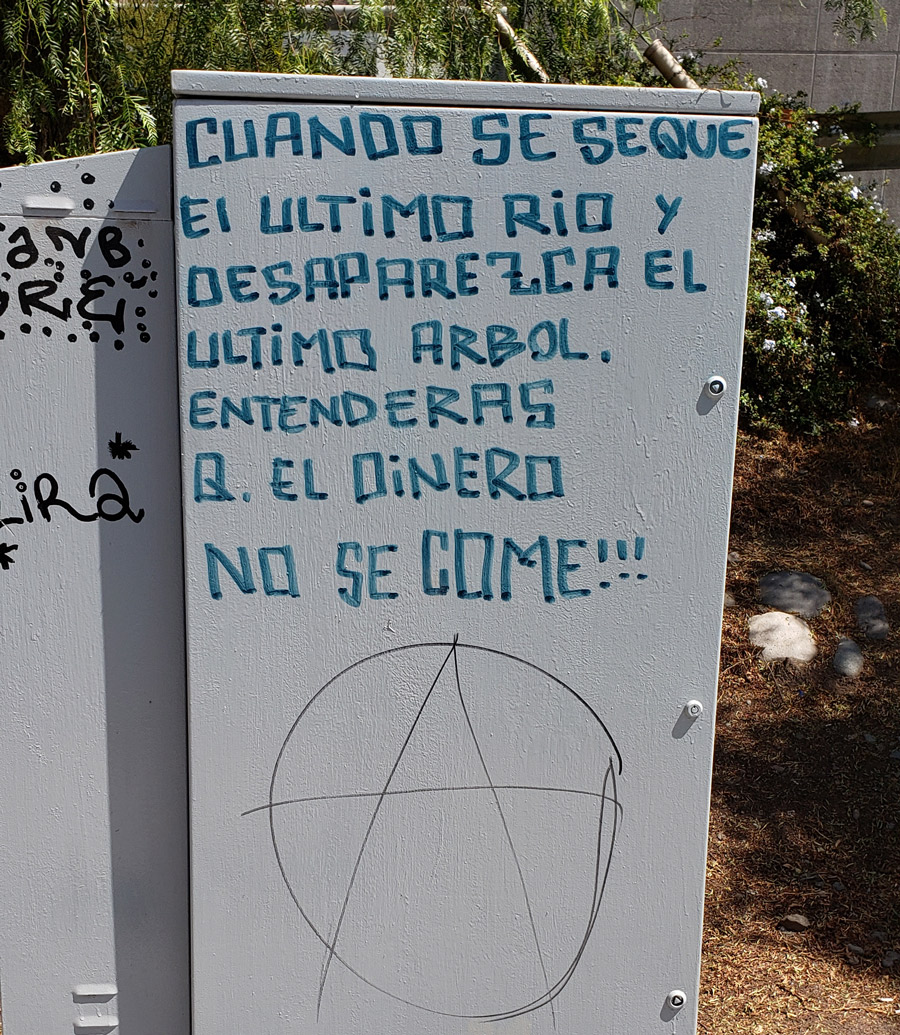 CUANDO SE SEQUE
El ULTiMO RiO Y
DESAPAREZCA EL
ULTiMO ARBOL.
ENTENDERAS
Q. EL DiNERO
NO SE COME!!!